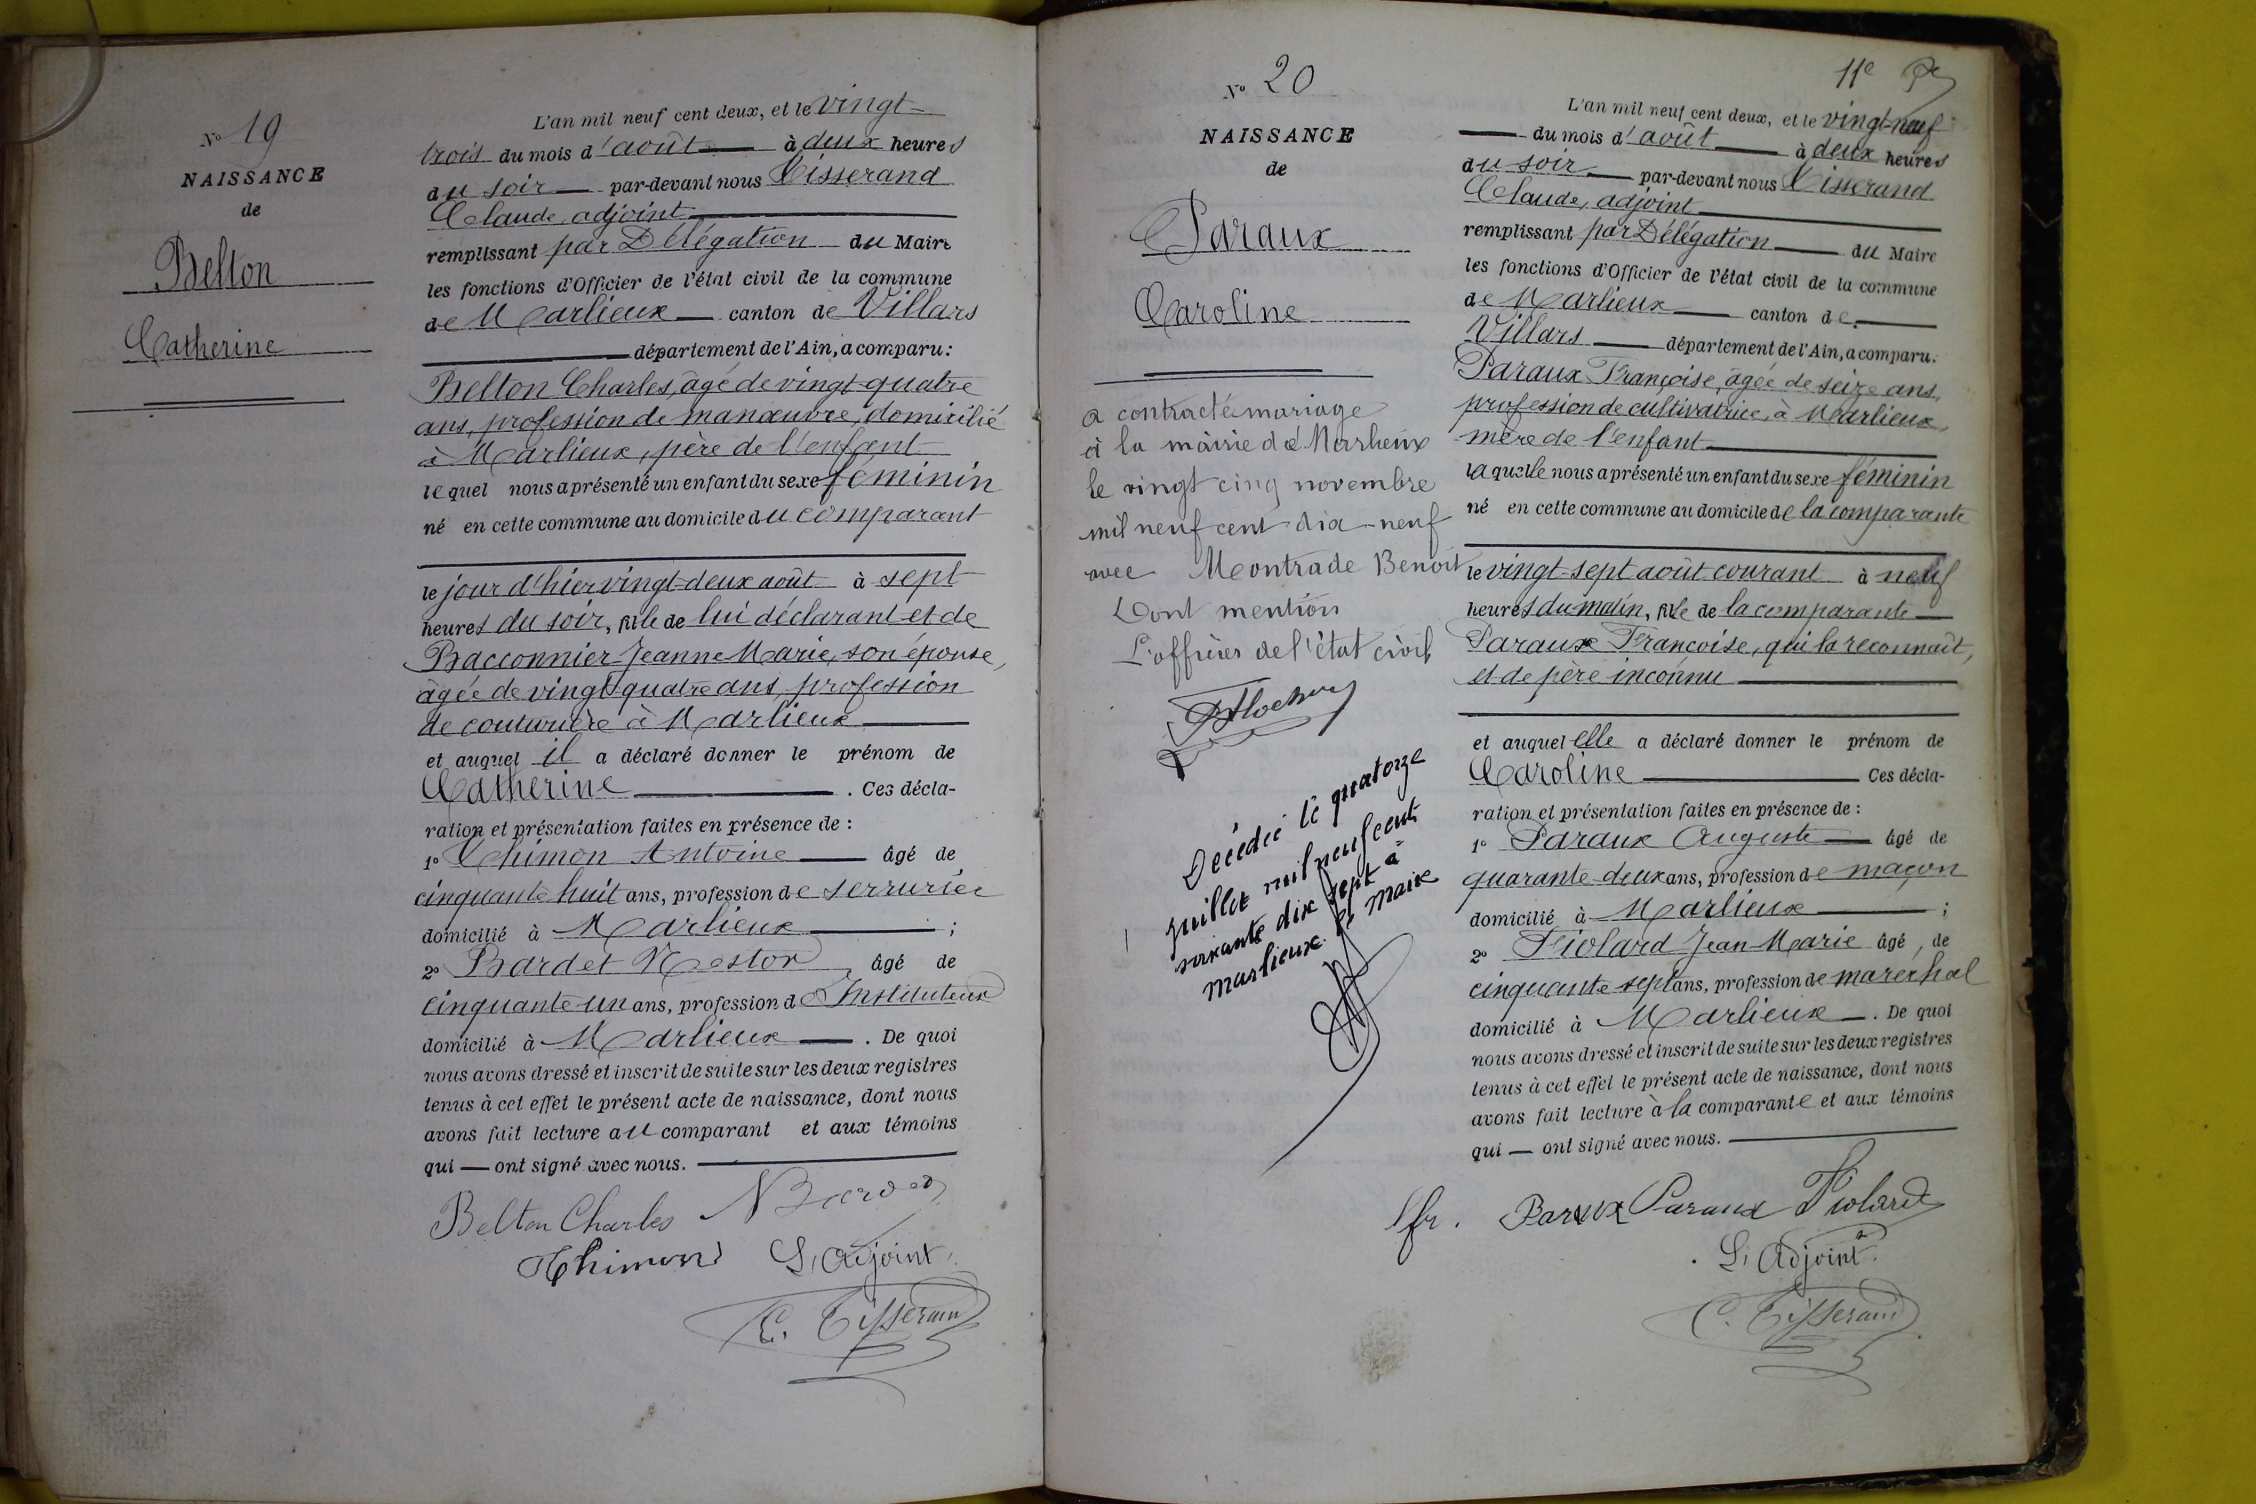 No 19
NAISSANCE
de
Belton
Catherine
L'an mil neuf cent deux, et le vingt-
trois du mois d'août à deux heures
du soir par-devant nous Tisserand
Claude, adjoint
remplissant par Délégation du Maire
les fonctions d'Officier de l'état civil de la commune
de Marlieux canton de Villars
département de l'Ain, a comparu:
Belton Charles, âgé de vingt-quatre
ans, profession de manœuvre, domicilié
à Marlieux, père de l'enfant
lequel nous a présenté un enfant du sexe féminin
né en cette commune au domicile du comparant
le jour d'hier vingt-deux août à sept
heures du soir, fille de lui déclarant et de
Bacconnier Jeanne Marie, son épouse,
âgée de vingt quatre ans, profession
de couturière à Marlieux
et auquel il a déclaré donner le prénom de
Catherine. Ces décla-
ration et présentation faites en présence de :
1o Thimon Antoine âgé de
cinquante huit ans, profession de serrurier
domicilié à Marlieux ;
2o Bardet Nestor âgé de
cinquante-un ans, profession d'Instituteur
domicilié à Marlieux. De quoi
nous avons dressé et inscrit de suite sur les deux registres
tenus à cet effet le présent acte de naissance, dont nous
avons fait lecture au comparant et aux témoins
qui — ont signé avec nous.
Belton Charles N Bardet
Thimon L'Adjoint
C. Tisserand
11e
No 20
NAISSANCE
de
Paraux
Caroline
a contracté mariage
à la mairie de Marlieux
le vingt cinq novembre
mil neuf cent dix-neuf
avec Montrade Benoit
Dont mention
L'officier de l'état civil
Décédée le quatorze
juillet mil neuf cent
soixante dix sept à
Marlieux. le Maire
L'an mil neuf cent deux, et le vingt-neuf
du mois d'août à deux heures
du soir par-devant nous Tisserand
Claude, adjoint
remplissant par Délégation du Maire
les fonctions d'Officier de l'état civil de la commune
de Marlieux canton de
Villars département de l'Ain, a comparu:
Paraux Françoise, âgée de seize ans,
profession de cultivatrice, à Marlieux,
mère de l'enfant
laquelle nous a présenté un enfant du sexe féminin
né en cette commune au domicile de la comparante
le vingt-sept août courant à neuf
heures du matin, fille de la comparante
Paraux Françoise, qui la reconnaît,
et de père inconnu
et auquel elle a déclaré donner le prénom de
Caroline Ces décla-
ration et présentation faites en présence de :
1o Paraux Auguste âgé de
quarante-deux ans, profession de maçon
domicilié à Marlieux ;
2o Fiolard Jean-Marie âgé de
cinquante sept ans, profession de maréchal
domicilié à Marlieux. De quoi
nous avons dressé et inscrit de suite sur les deux registres
tenus à cet effet le présent acte de naissance, dont nous
avons fait lecture à la comparante et aux témoins
qui — ont signé avec nous.
fr. Paraux Paraux Fiolard
L'Adjoint
C. Tisserand